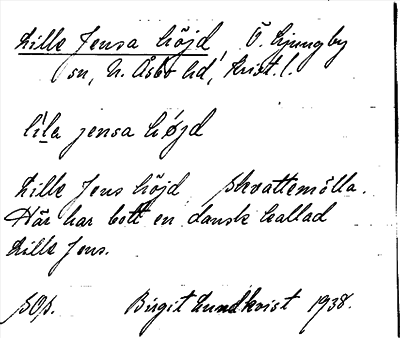 Lille Jensa höjd, Ö. Ljungby
sn, N. Åsbo hd, Krist. l.
lila jensa højd
Lille Jens höjd Skvattemölla.
Här har bott en dansk kallad
Lille Jens.
Birgit Lundkvist 1938.